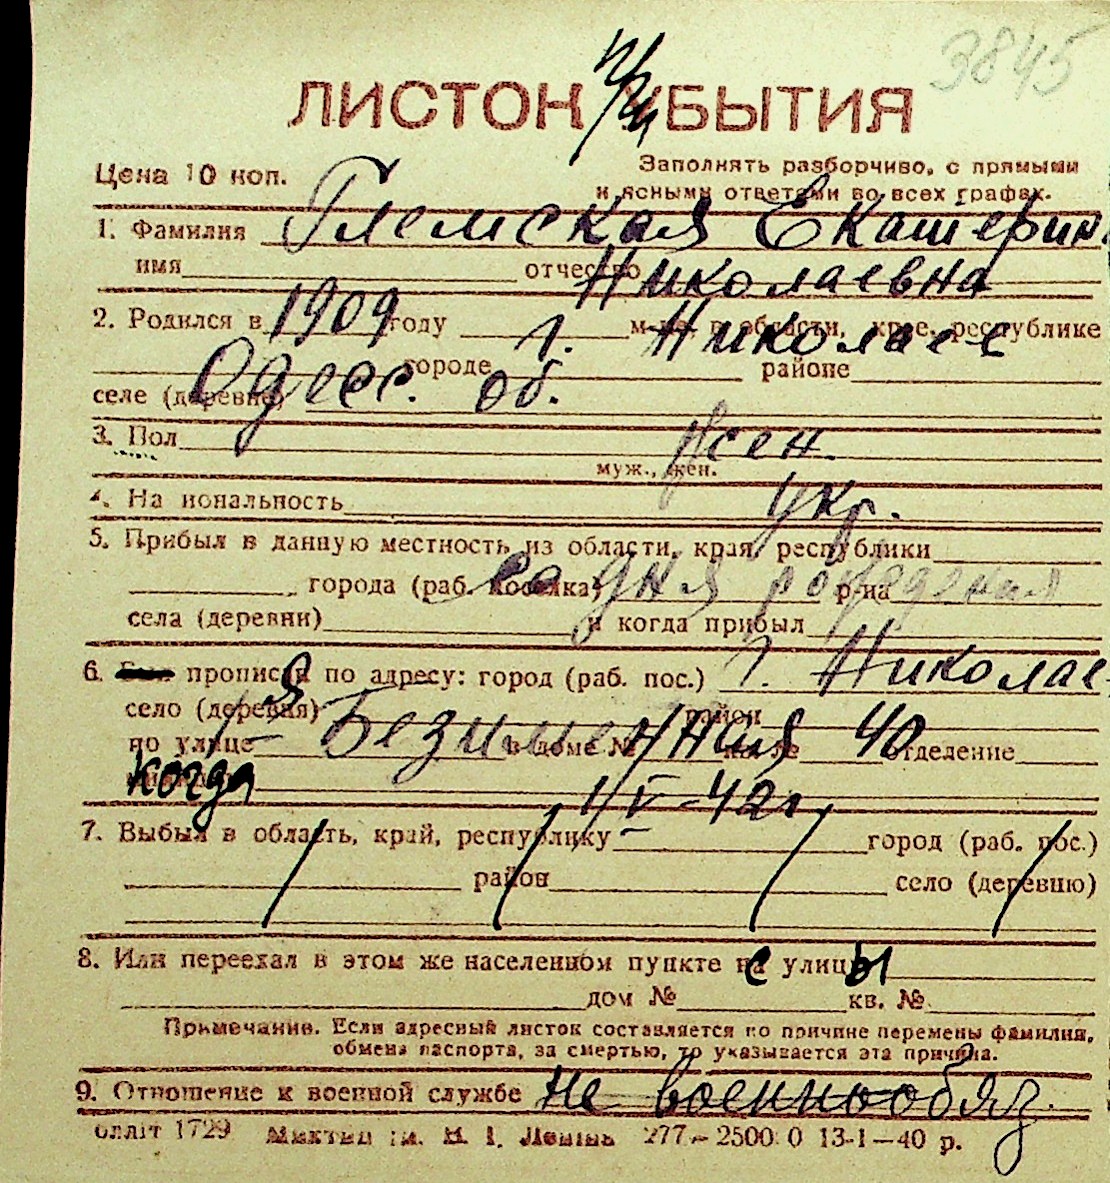 3845
ЛИСТОК УБЫТИЯ
Цена 10 коп.
Заполнять разборчиво, с прямыми
и ясными ответами во всех графах.
1. Фамилия Глемская Екатерин
имя отчество Николаевна
2. Родился в 1909 году г. Николаев
м-це, в области, крае, республике
Одесс. об. городе районе
селе (деревне)
3. Пол жен.
муж., жен.
4. На иональность укр.
5. Прибыл в данную местность из области, края, республики
города (раб. поселка) со дня рождения р-на
села (деревни) и когда прибыл
6. прописан по адресу: город (раб. пос.) г. Николаев
село (деревня) район
по улице 1-я Безименная 40 в доме № кв. № отделение
когда 1/V-42г.
7. Выбыл в область, край, республику город (раб. пос.)
район село (деревню)
8. Или переехал в этом же населенном пункте с улицы
дом № кв. №
Примечание. Если адресный листок составляется по причине перемены фамилии,
обмена паспорта, за смертью, то указывается эта причина.
9. Отношение к военной службе не военнообяз.
1729 Ленина 277—2500 0 13-1—40 р.